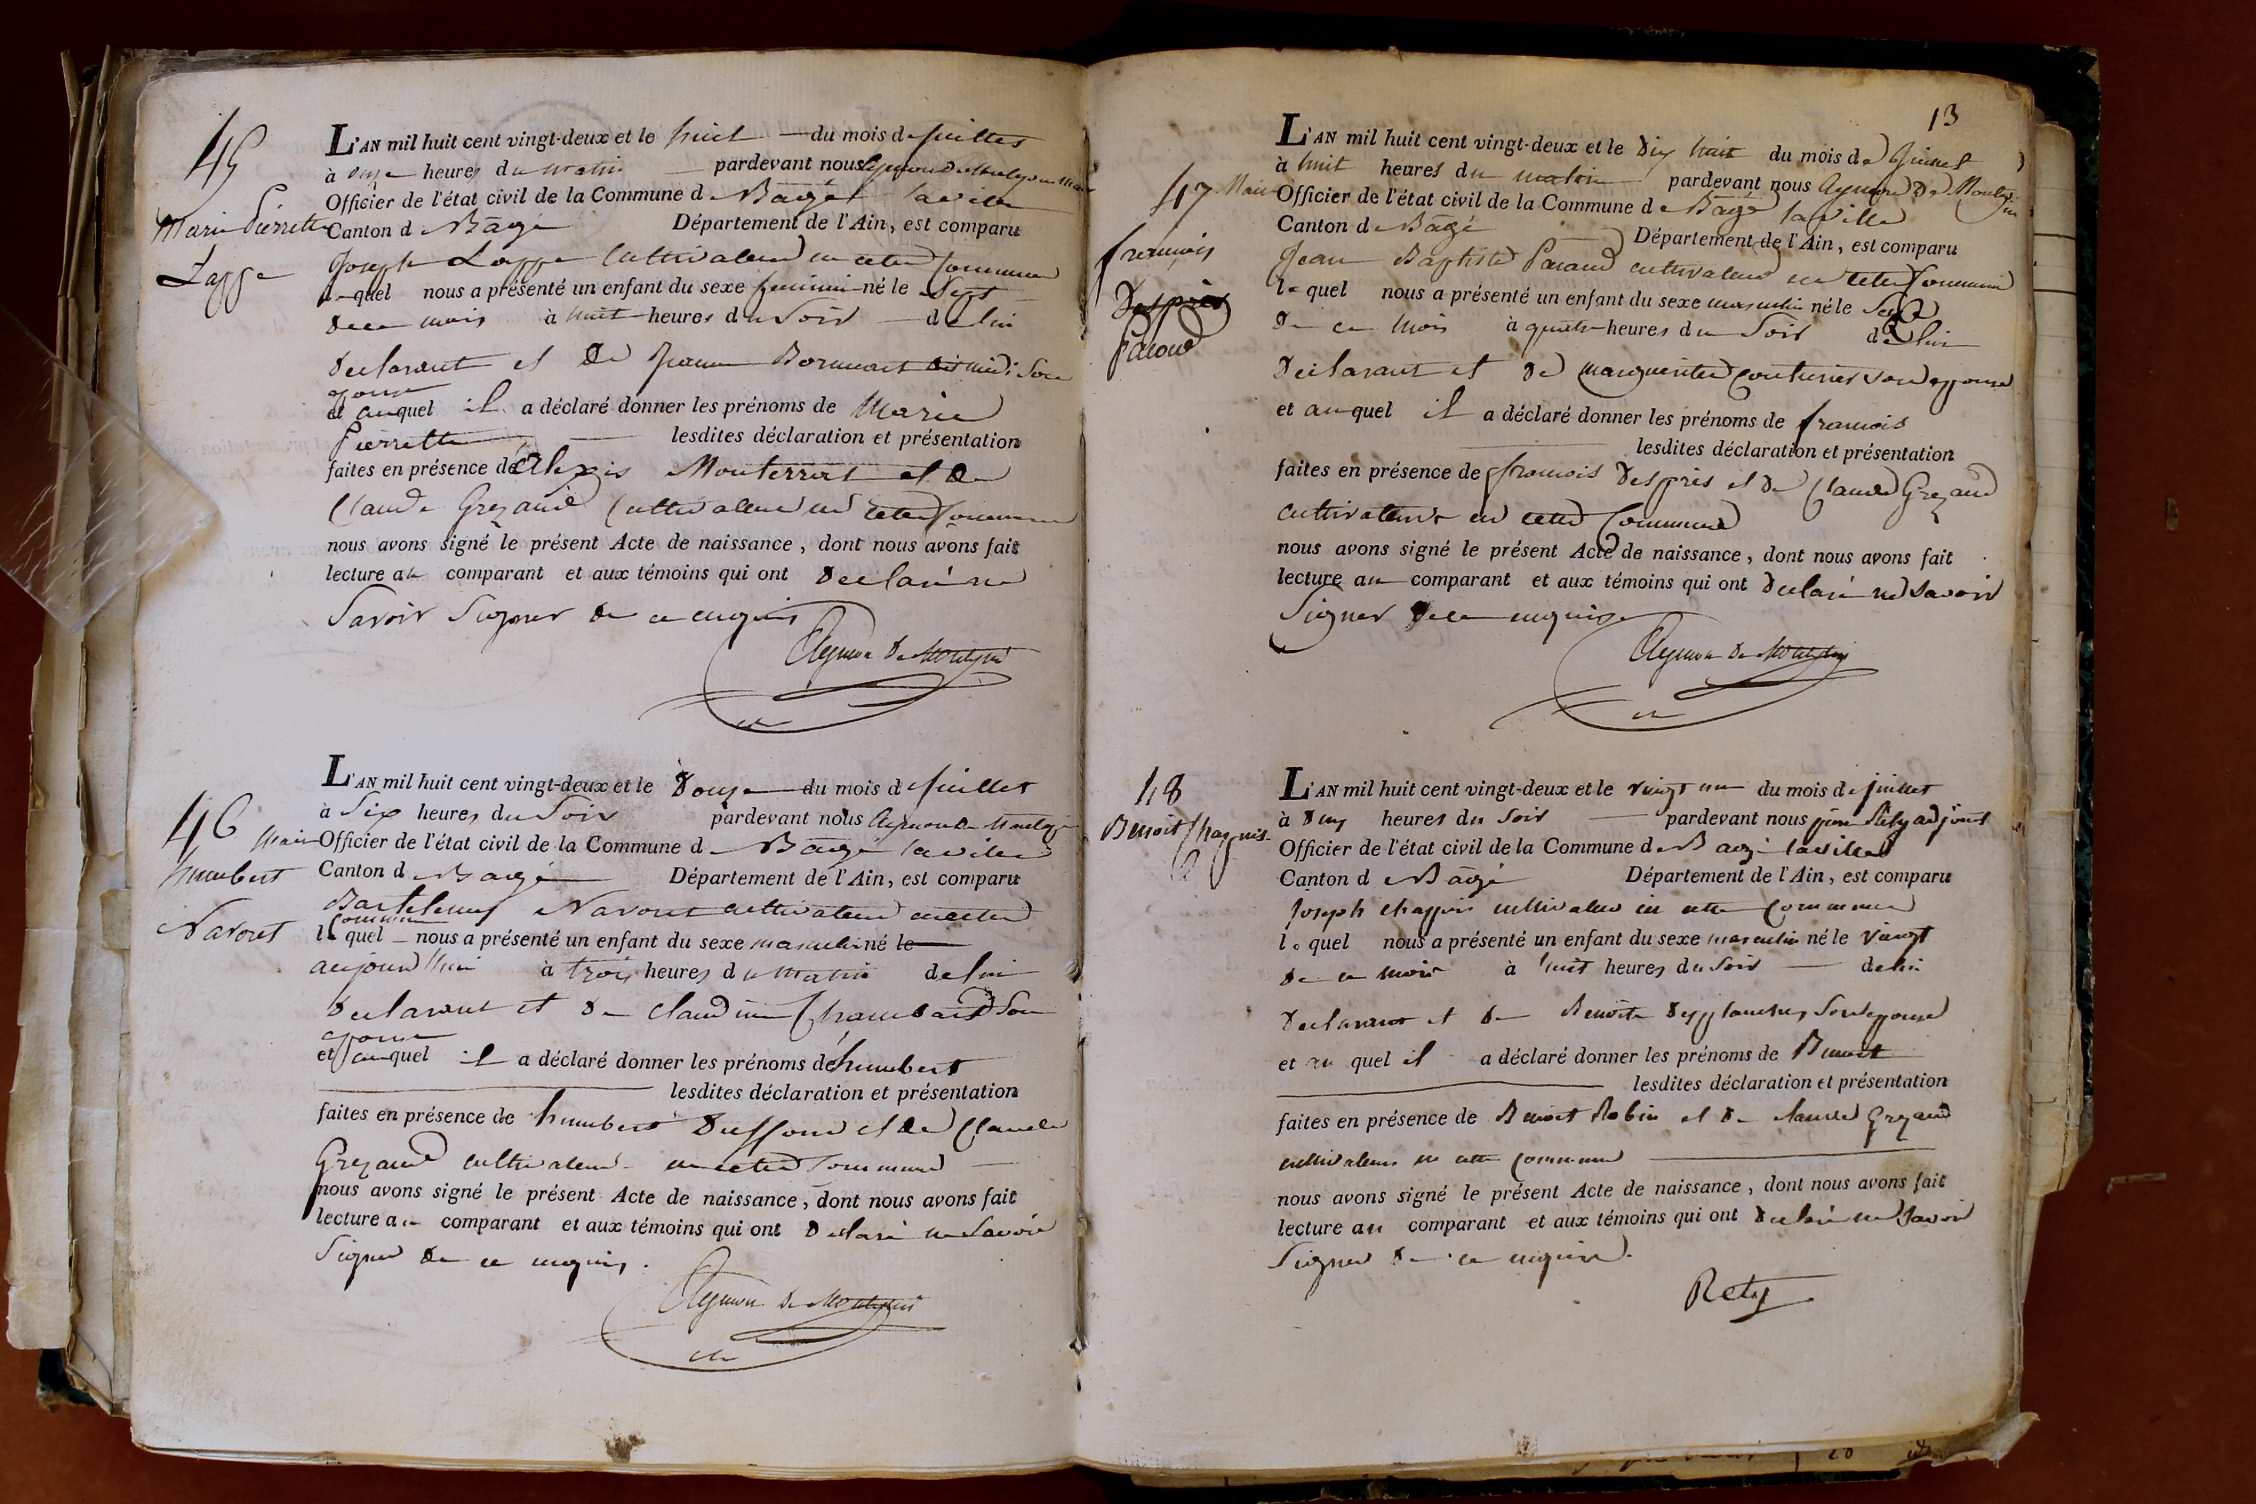 45
Marie Pierrette
Lappe
L'AN mil huit cent vingt-deux et le huit du mois de juillet
à onze heures du matin pardevant nous Aymon de Montépin Maire
Officier de l'état civil de la Commune de Bâgé la ville
Canton de Bâgé Département de l'Ain, est comparu
Joseph Lappe cultivateur en cette Commune
lequel nous a présenté un enfant du sexe feminin né le Sept
de ce mois à huit heures du Soir de lui
declarant et de jeanne son
epouse
et auquel il a déclaré donner les prénoms de Marie
Pierrette lesdites déclaration et présentation
faites en présence de Alexis Monterrat et de
Claude Grezaud Cultivateur en cette Commune
nous avons signé le présent Acte de naissance, dont nous avons fait
lecture au comparant et aux témoins qui ont declaré ne
Savoir Signer de ce enquis
Aymon De Montépin
46
humbert
Navoret
L'AN mil huit cent vingt-deux et le Douze du mois de juillet
à Six heures du Soir pardevant nous Aymon de Montépin
Maire Officier de l'état civil de la Commune de Bâgé la ville
Canton de Bâgé Département de l'Ain, est comparu
Bartelemy Navoret cultivateur en cette
Commune
lequel nous a présenté un enfant du sexe masculin né le
aujourd'hui à trois heures du matin de lui
declarant et de claudine Chambard Son
epouse
et auquel il a déclaré donner les prénoms de humbert
lesdites déclaration et présentation
faites en présence de humbert Duffour et de Claude
Grezaud cultivateur en cette Commune
nous avons signé le présent Acte de naissance, dont nous avons fait
lecture au comparant et aux témoins qui ont declaré ne Savoir
Signer de ce enquis.
Aymon De Montépin
13
47
françois
Despres
Pacoud
L'AN mil huit cent vingt-deux et le Dix huit du mois de Juillet
à huit heures du matin pardevant nous Aymon De Montépin
Maire Officier de l'état civil de la Commune de Bâgé la ville
Canton de Bâgé Département de l'Ain, est comparu
Jean Baptiste Pacoud cultivateur en cette Commune
lequel nous a présenté un enfant du sexe masculin né le
De ce mois à quatre heures du Soir de lui
Declarant et de marguerite Couturier son epouse
et auquel il a déclaré donner les prénoms de françois
lesdites déclaration et présentation
faites en présence de françois Desprès et de Claude Grezaud
cultivateurs en cette Commune
nous avons signé le présent Acte de naissance, dont nous avons fait
lecture au comparant et aux témoins qui ont Declaré ne savoir
Signer de ce enquis
Aymon De Montépin
48
Benoit Chapuis
L'AN mil huit cent vingt-deux et le vingt un du mois de juillet
à Deux heures du soir pardevant nous pierre Réty adjoint
Officier de l'état civil de la Commune de Bâgé la ville
Canton de Bâgé Département de l'Ain, est comparu
Joseph chappuis cultivateur en cette Commune
lequel nous a présenté un enfant du sexe masculin né le vingt
de ce mois à huit heures du soir de lui
Declarant et de Benoite Desplanches Son epouse
et au quel il a déclaré donner les prénoms de Benoit
lesdites déclaration et présentation
faites en présence de Benoit Robin et de claude Grezaud
cultivateurs en cette Commune
nous avons signé le présent Acte de naissance, dont nous avons fait
lecture au comparant et aux témoins qui ont declaré ne Savoir
Signer de ce enquis.
Rety